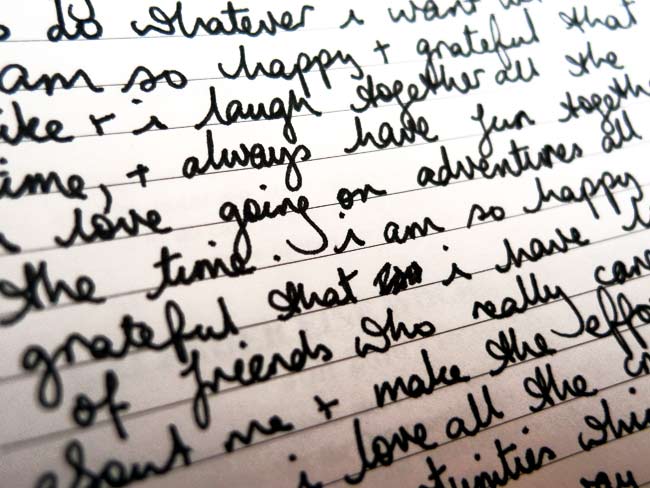 do whatever i want
am so happy + grateful that
+ i laugh together all the
time, + always have fun
love going on adventures all
the time. i am so happy
grateful that i have
of friends who really
about me + make the
i love all the